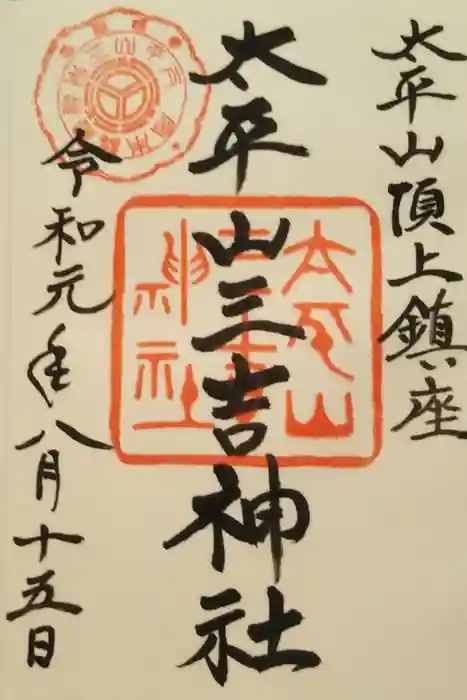 太平山頂上鎮座
太平山三吉神社
令和元年八月十五日
太平山
三吉
神社